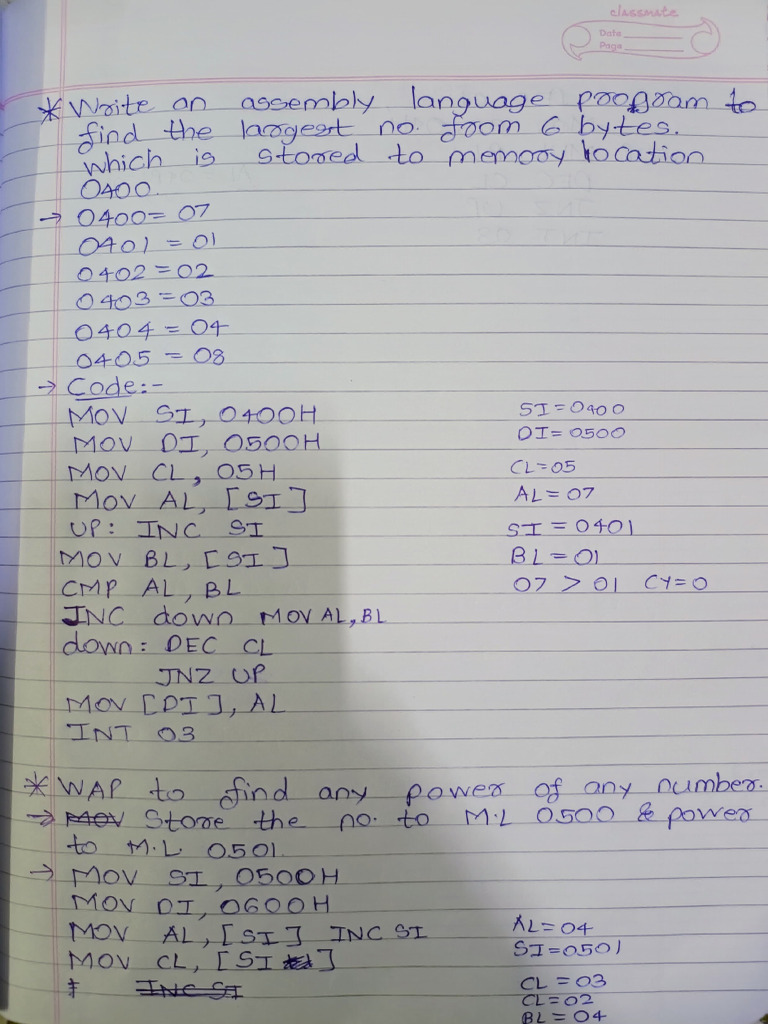 classmate
Date
Page
* Write an assembly language program to
find the largest no. from 6 bytes.
which is stored to memory location
0400.
→ 0400 = 07
0401 = 01
0402 = 02
0403 = 03
0404 = 04
0405 = 08
→ Code:-
MOV SI, 0400H SI = 0400
MOV DI, 0500H DI = 0500
MOV CL, 05H CL = 05
MOV AL, [SI] AL = 07
UP: INC SI SI = 0401
MOV BL, [SI] BL = 01
CMP AL, BL 07 > 01 CY=0
JNC down MOV AL, BL
down: DEC CL
JNZ UP
MOV [DI], AL
INT 03
* WAP to find any power of any number.
→ MOV Store the no. to M.L 0500 & power
to M.L. 0501.
→ MOV SI, 0500H
MOV DI, 0600H
MOV AL, [SI] INC SI AL = 04
MOV CL, [SI] SI = 0501
INC SI CL = 03
CL = 02
BL = 04